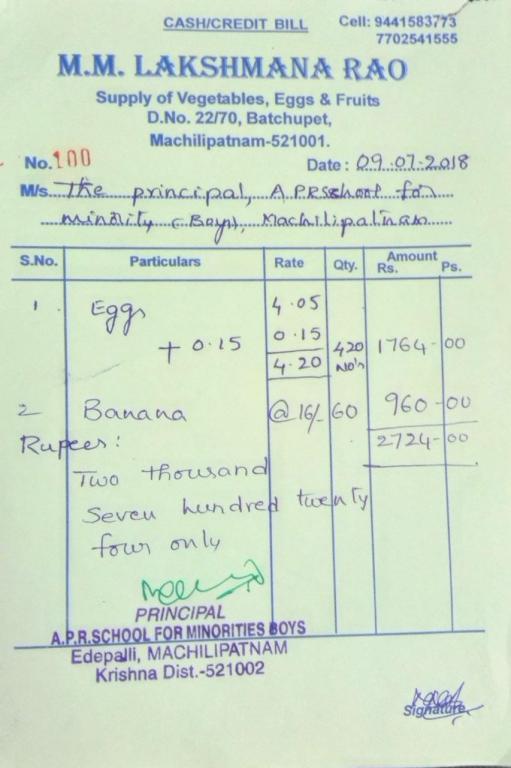 CASH/CREDIT BILL Cell: 9441583773
7702541555
M.M. LAKSHMANA RAO
Supply of Vegetables, Eggs & Fruits
D.No. 22/70, Batchupet,
Machilipatnam-521001.
No. 100 Date : 09.07.2018
M/s. The principal, A.P.R.School for
minority (Boys), Machilipatnam
S.No. Particulars Rate Qty. Amount
Rs. Ps.
1 Eggs 4.05
+ 0.15 0.15 420 1764-00
4.20 No's
2 Banana @ 16/- 60 960-00
Rupees: 2724-00
Two thousand
Seven hundred twenty
four only
PRINCIPAL
A.P.R.SCHOOL FOR MINORITIES BOYS
Edepalli, MACHILIPATNAM
Krishna Dist.-521002
Signature